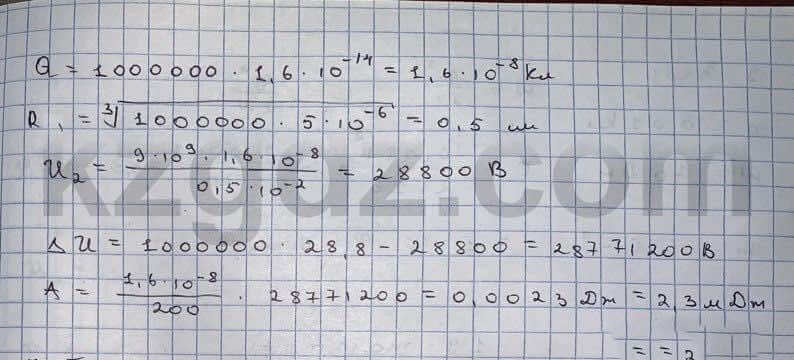 Q = 1000000 · 1,6 · 10⁻¹⁴ = 1,6 · 10⁻⁸ Кл
R₁ = ∛(1000000 · 5 · 10⁻⁶) = 0,5 см
U₂ = (9 · 10⁹ · 1,6 · 10⁻⁸)/(0,5 · 10⁻²) = 28800 В
ΔU = 1000000 · 28,8 - 28800 = 28771200 В
A = (1,6 · 10⁻⁸)/200 · 28771200 = 0,0023 Дж = 2,3 мДж
kzgaz.com